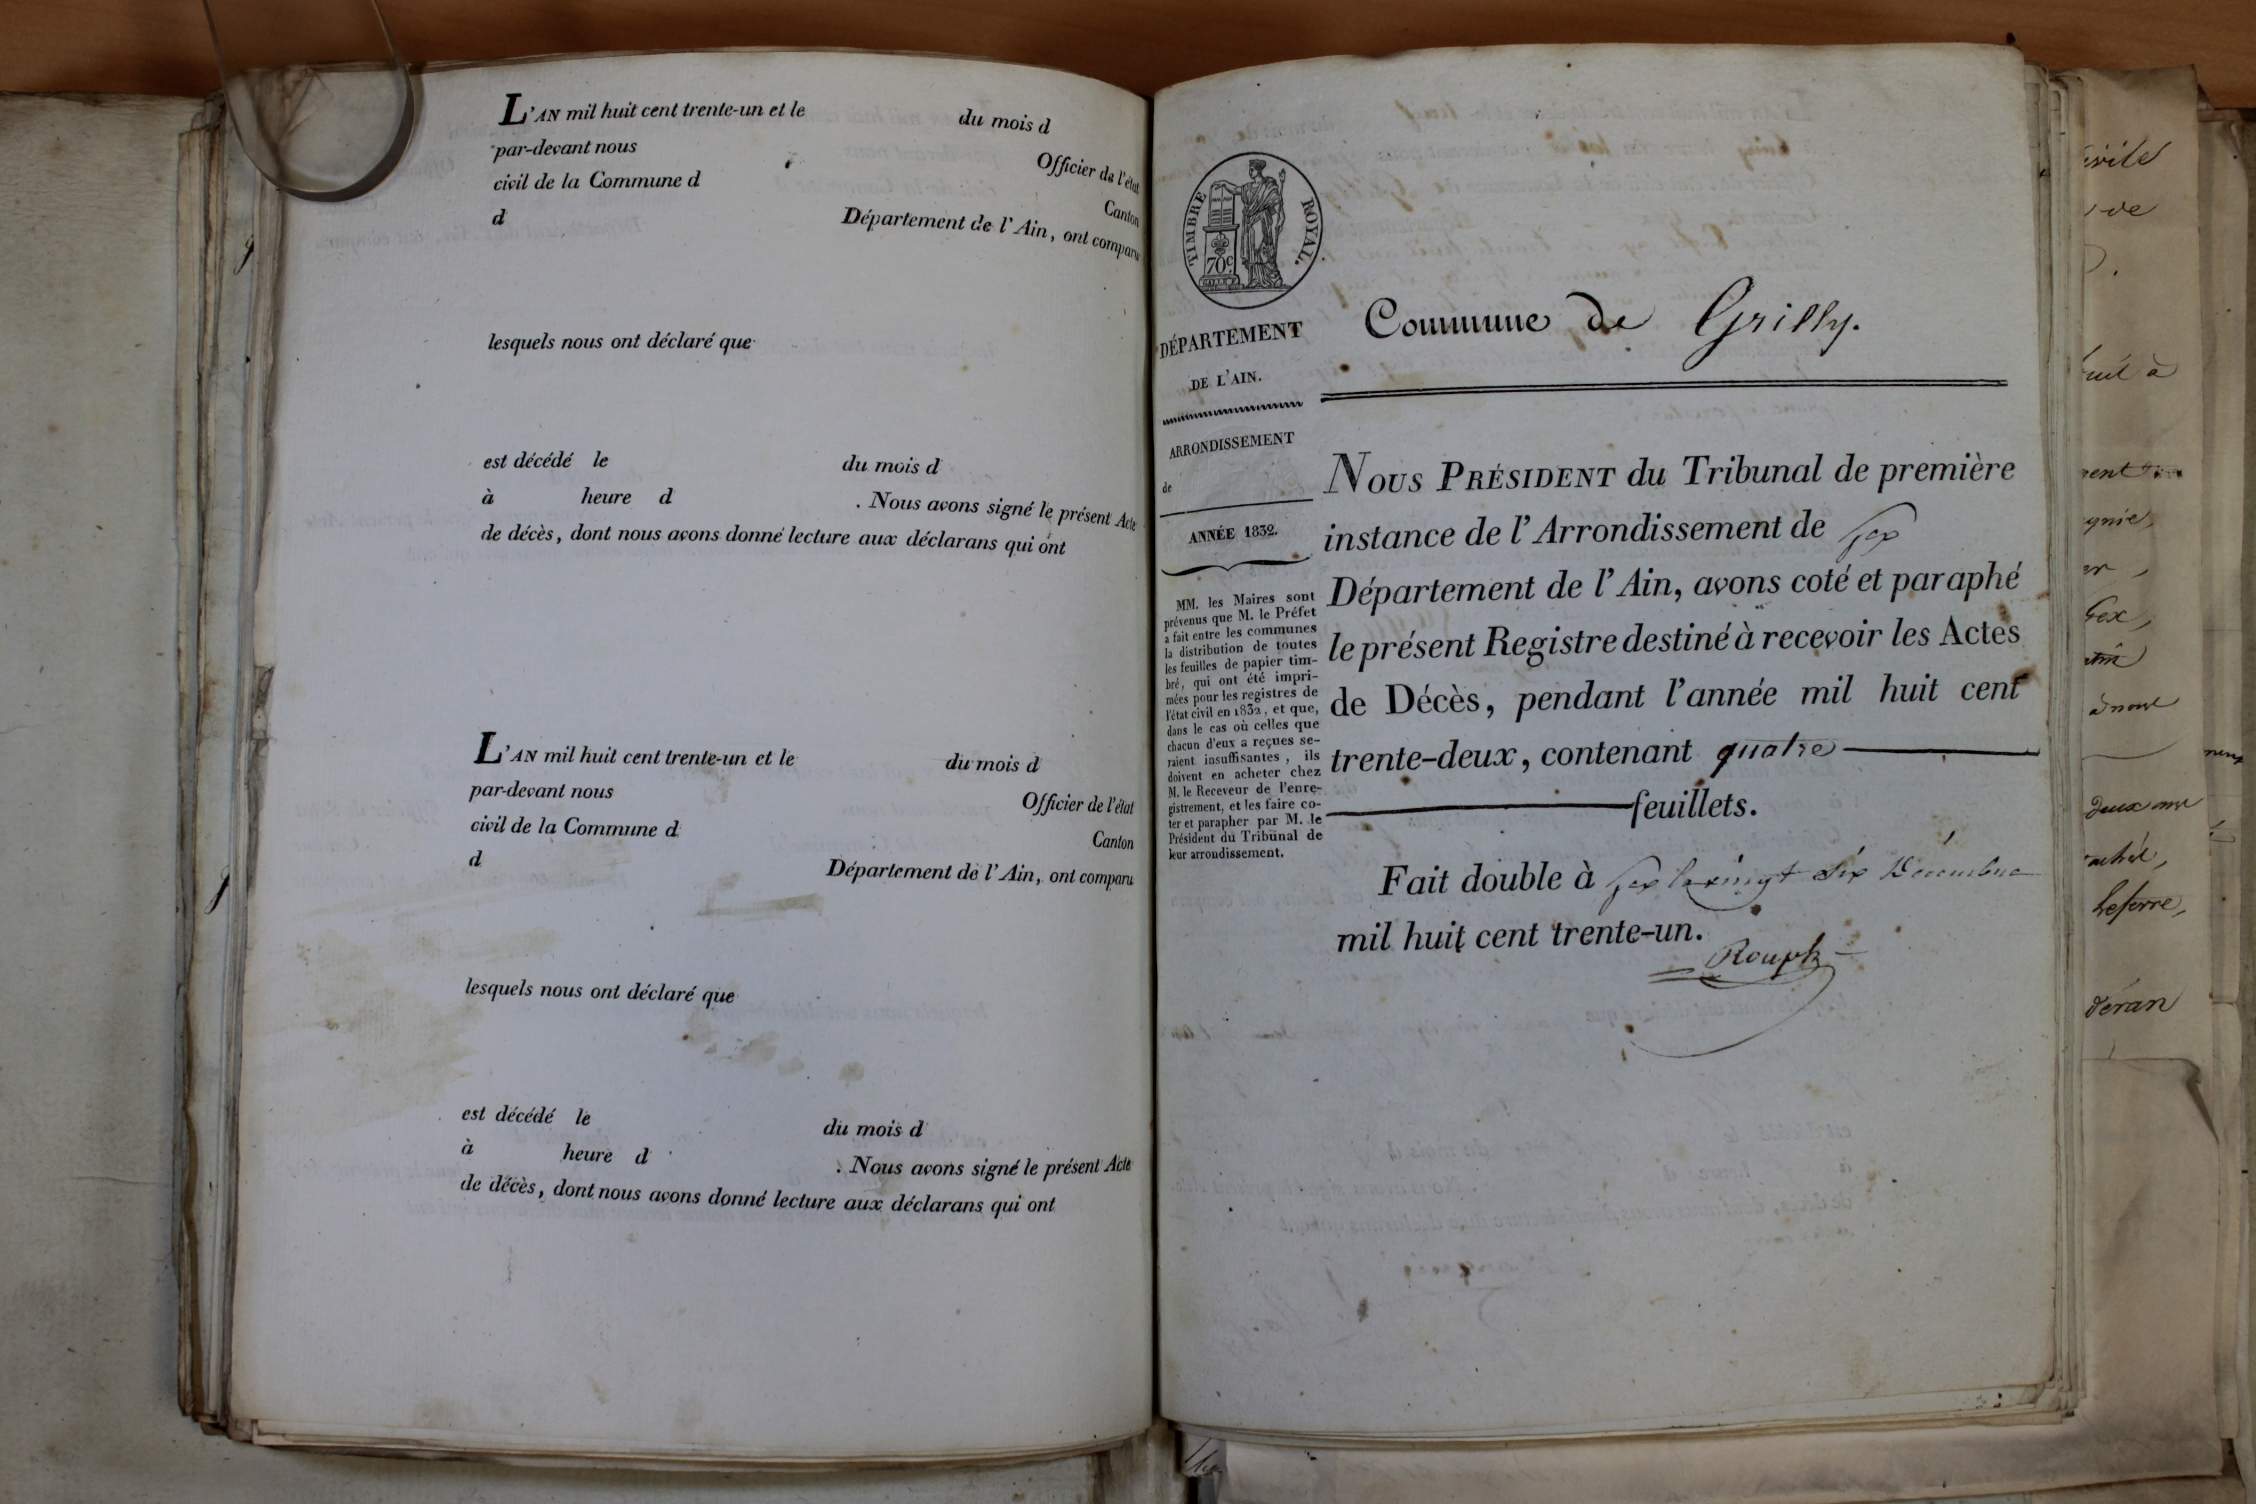 L'AN mil huit cent trente-un et le du mois d
par-devant nous Officier de l'état
civil de la Commune d Canton
d Département de l'Ain, ont comparu
lesquels nous ont déclaré que
est décédé le du mois d
à heure d . Nous avons signé le présent Acte
de décès, dont nous avons donné lecture aux déclarans qui ont
L'AN mil huit cent trente-un et le du mois d
par-devant nous Officier de l'état
civil de la Commune d Canton
d Département de l'Ain, ont comparu
lesquels nous ont déclaré que
est décédé le du mois d
à heure d . Nous avons signé le présent Acte
de décès, dont nous avons donné lecture aux déclarans qui ont
TIMBRE ROYAL.
70c
DÉPARTEMENT
DE L'AIN.
ARRONDISSEMENT
de
ANNÉE 1832.
MM. les Maires sont
prévenus que M. le Préfet
a fait entre les communes
la distribution de toutes
les feuilles de papier tim-
bré, qui ont été impri-
mées pour les registres de
l'état civil en 1832, et que,
dans le cas où celles que
chacun d'eux a reçues se-
raient insuffisantes, ils
doivent en acheter chez
M. le Receveur de l'enre-
gistrement, et les faire co-
ter et parapher par M. le
Président du Tribunal de
leur arrondissement.
Commune de Grilly.
NOUS PRÉSIDENT du Tribunal de première
instance de l'Arrondissement de Gex
Département de l'Ain, avons coté et paraphé
le présent Registre destiné à recevoir les Actes
de Décès, pendant l'année mil huit cent
trente-deux, contenant quatre
feuillets.
Fait double à Gex le vingt six Décembre
mil huit cent trente-un.
Rouph